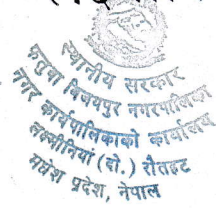 स्थानीय सरकार
फतुवा बिजयपुर नगरपालिका
नगर कार्यपालिकाको कार्यालय
लक्ष्मीनियाँ (बो.) रौतहट
मधेश प्रदेश, नेपाल